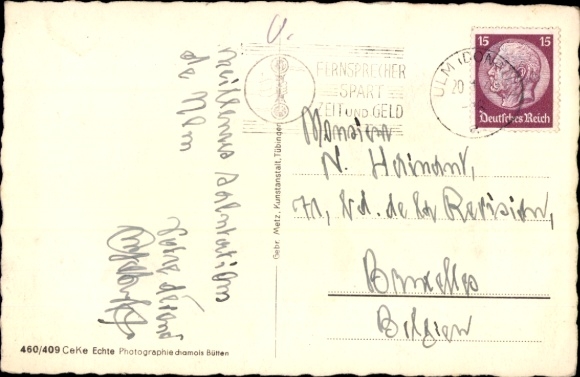 Meilleures Salutations
de Ulm
Gebr. Metz, Kunstanstalt, Tübingen
460/409 CeKe Echte Photographie chamois Bütten
FERNSPRECHER
SPART
ZEIT UND GELD
ULM (DONAU)
20
15 15
Deutsches Reich
Monsieur
N. Hainant,
71, Bd. de la Revision,
Bruxelles
Belgien